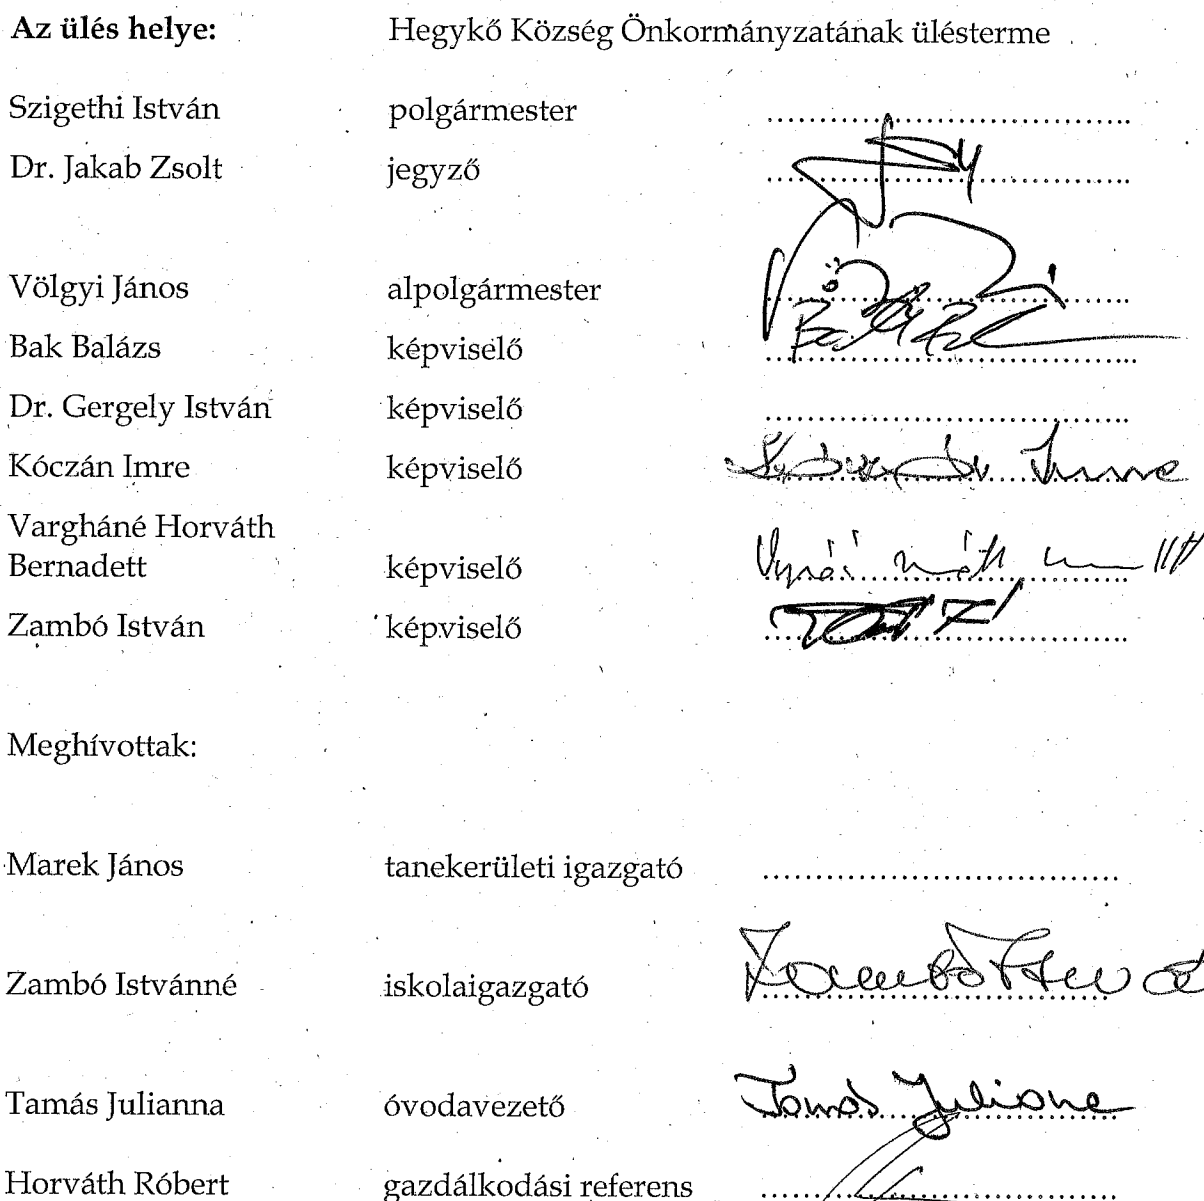 Az ülés helye: Hegykő Község Önkormányzatának ülésterme
Szigethi István polgármester ........................................
Dr. Jakab Zsolt jegyző ........................................
Völgyi János alpolgármester ........................................
Bak Balázs képviselő ........................................
Dr. Gergely István képviselő ........................................
Kóczán Imre képviselő ........................................ Imre
Vargháné Horváth
Bernadett képviselő ........................................
Zambó István képviselő ........................................
Meghívottak:
Marek János tanekerületi igazgató ........................................
Zambó Istvánné iskolaigazgató ........................................ Zambó
Tamás Julianna óvodavezető ........................................ Tamás Julianna
Horváth Róbert gazdálkodási referens ........................................